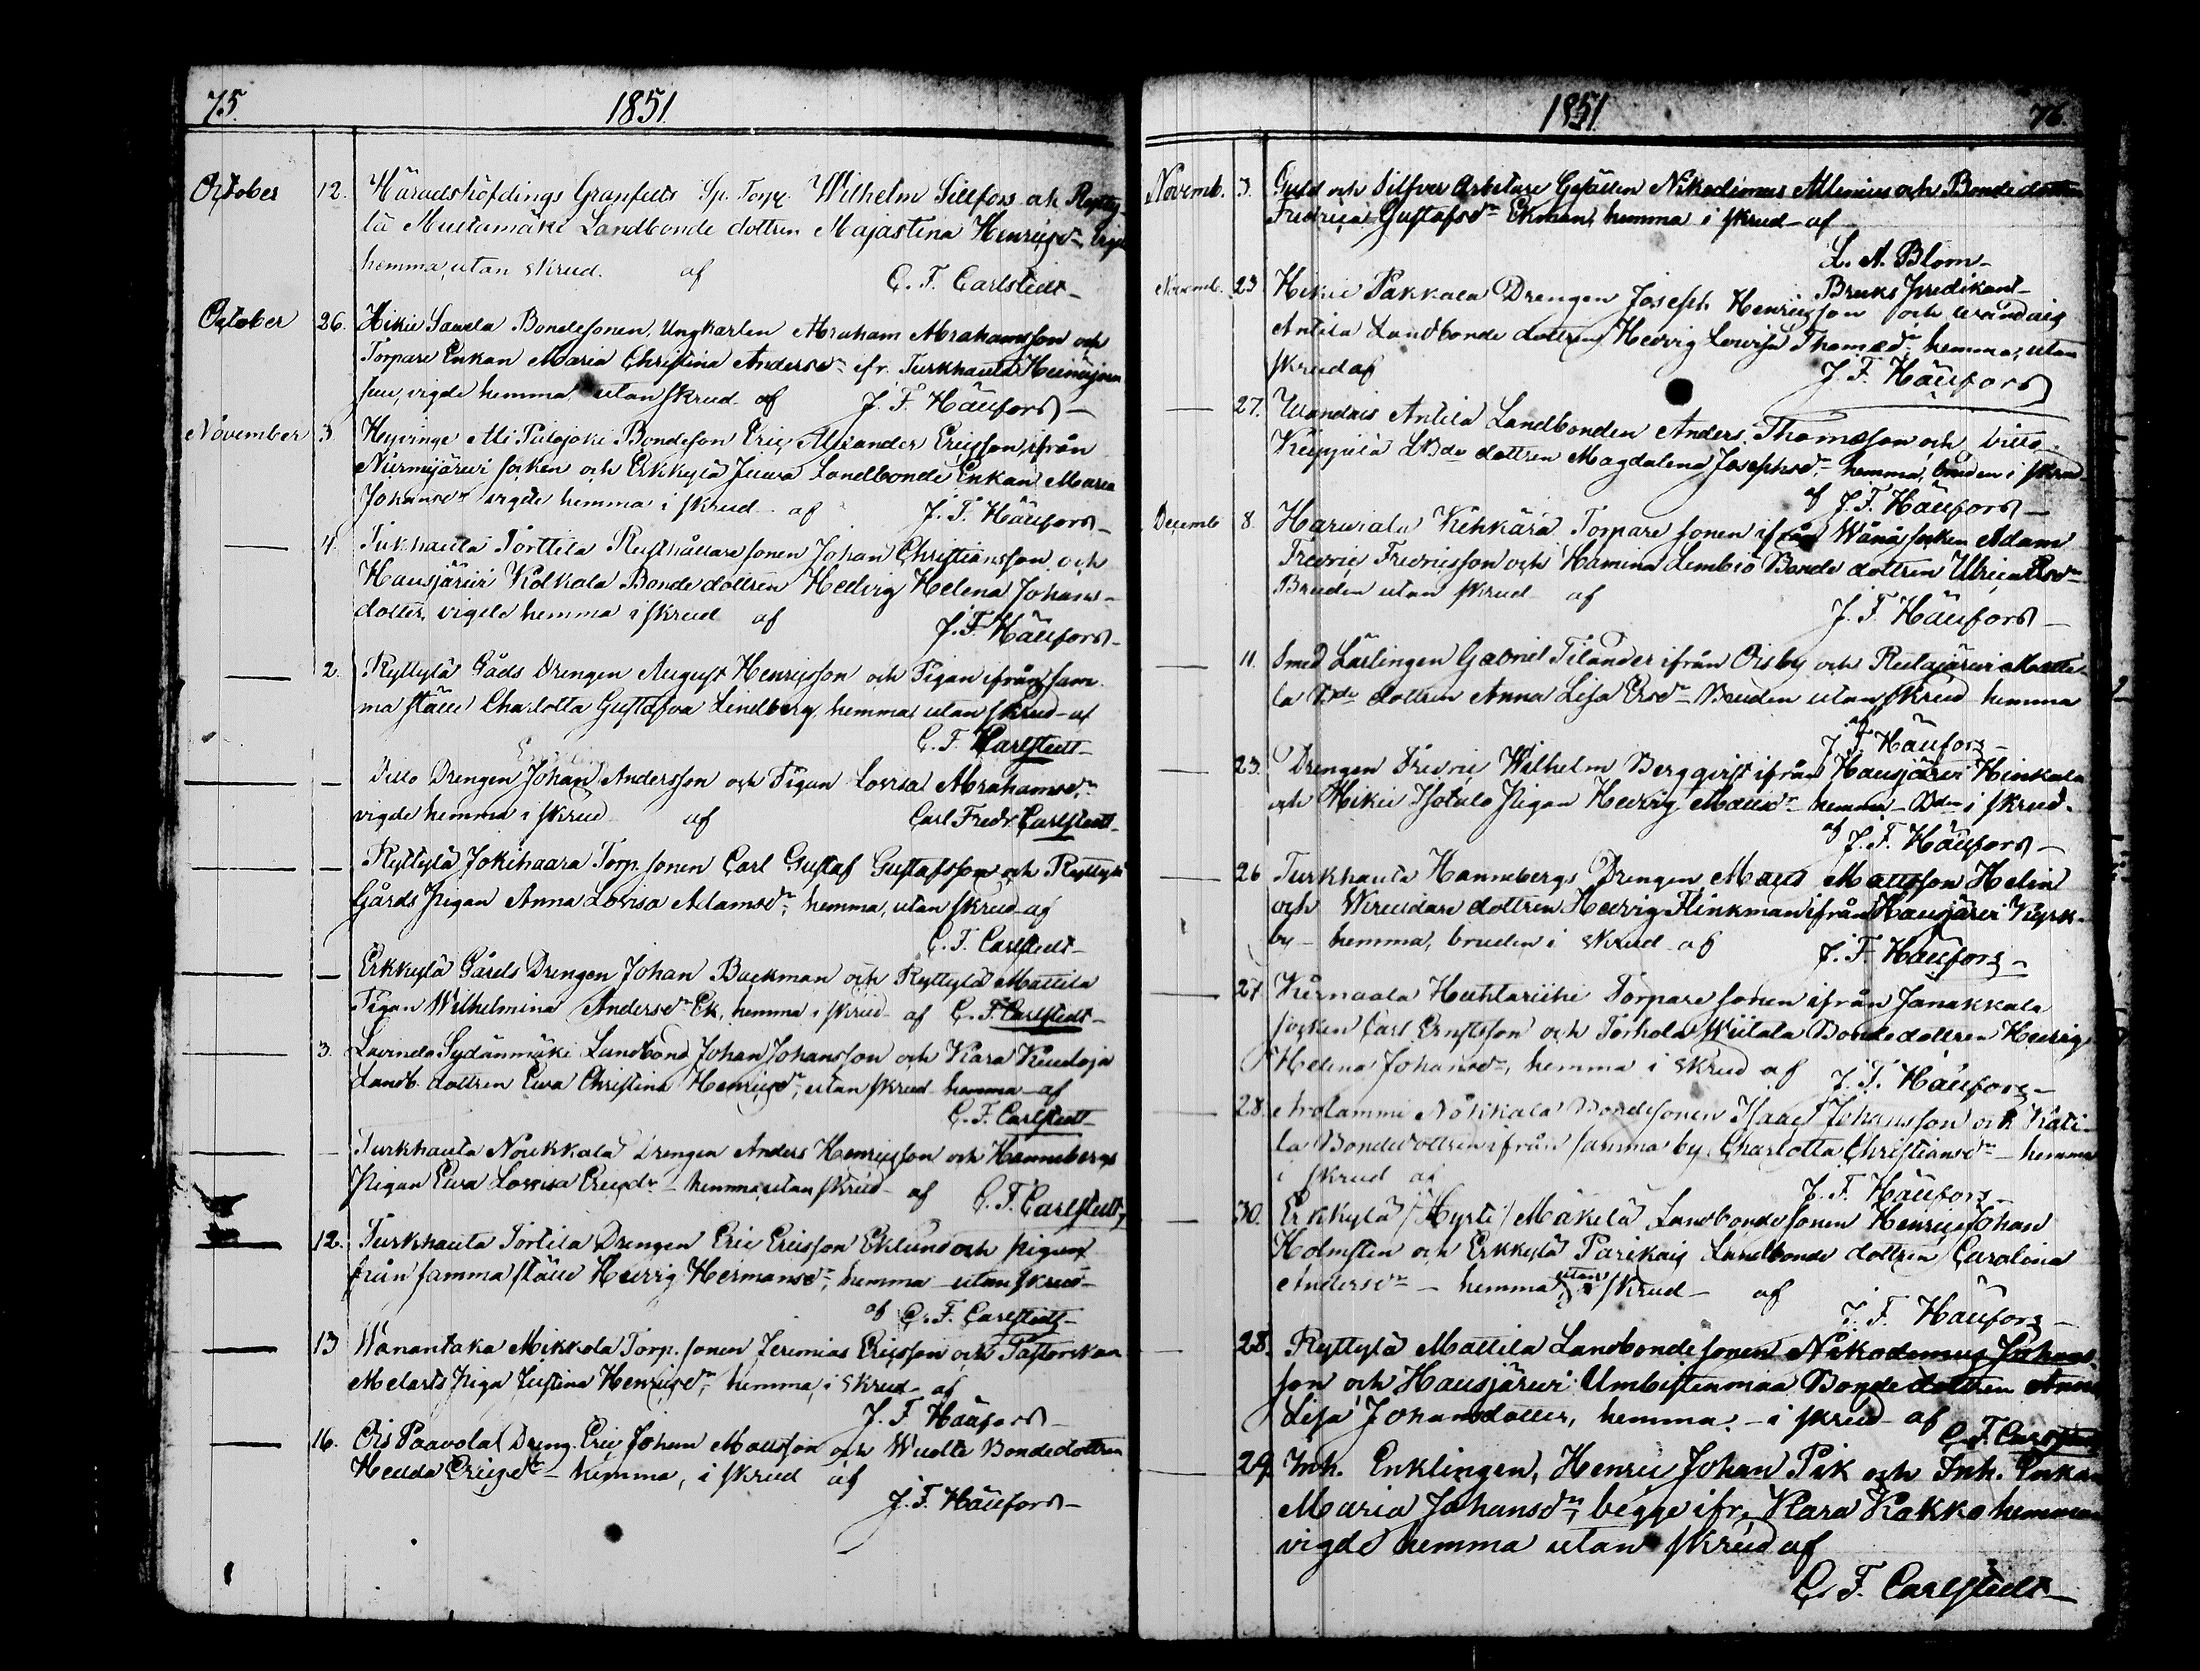 75. 1851.
October 12. Häradshöfdings Granfelts Sp. Torp. Wilhelm Sillfors och Rytty-
lä Mustamäki Landbonde dottren Majastina Henricsdr, vigde
hemma, utan skrud. af C. F. Carlstedt
October 26. Hikiä Saxela Bondesonen, Ungkarlen Abraham Abrahamsson och
Torpare Enkan Maria Christina Andersdr ifr. Turkhauta
vigde hemma utan skrud af J. F. Häufors
November 3. Hyvinge Ali Palojoki Bondeson Eric Alexander Ericsson, ifrån
Nurmijärvi socken och Erkkylä Jussa Landbonde Enkan Maria
Johansdr vigde hemma i skrud af J. F. Häufors
4. Turkhauta Torttila Rusthållare sonen Johan Christiansson och
Hausjärvi Kolkala Bonde dottren Hedvig Helena Johans-
dotter, vigde hemma i skrud af J. F. Häufors
2. Ryttylä Gåds Drengen August Henricsson och Pigan ifrån sam-
ma ställe Charlotta Gustafva Lindberg, hemma utan skrud af
C. F. Carlstedt
Ditto Drengen Johan Andersson och Pigan Lovisa Abrahamsdr
vigde hemma i skrud af Carl Fredr. Carlstedt
Ryttylä Jokihaara Torp. sonen Carl Gustaf Gustafsson och Ryttylä
Gårds Pigan Anna Lovisa Adamsdr, hemma, utan skrud af
C. F. Carlstedt
Erkkylä Gårds Drengen Johan Backman och Ryttylä Mattila
Pigan Wilhelmina Andersdr Ek, hemma i skrud af C. F. Carlstedt
3. Lavinda Sydänmäki Landbond Johan Johansson och Kara Kuuloja
Landb. dottren Eva Christina Henricsdr, utan skrud hemma af
C. F. Carlstedt
Turkhauta Noukkala Drengen Anders Henricsson och Hannebergs
Pigan Eva Lovisa Ericsdr hemma utan skrud af C. F. Carlstedt
12. Turkhauta Torttila Drengen Eric Ericsson Eklund och Pigan
från samma ställe Hedvig Hermansdr, hemma utan skrud
af C. F. Carlstedt
13 Wanantaka Mikkola Torp. sonen Jeremias Ericsson och Pastorskan
Melarts Piga Justina Henricsdr, hemma, i skrud af
J. F. Häufors
16. Ois Paavola Dreng. Eric Johan Mattsson och Wuolte Bondedottren
Hedda Ericsdr hemma, i skrud af
J. F. Häufors
1851 76.
Novemb. 3. Guld och Silfver Arbetare Gesällen Nikodemus Allenius och Bonde dottren
Fredrica Gustafsdr Ekman, hemma i skrud af
L. A. Blom
Bruks Predikant
Novemb. 23 Hikiä Pakkala Drengen Joseph Henricsson och
Antila Landbonde dottren Hedvig Lovisa Thomædr, hemma, utan
skrud af J. F. Häufors
27. Antila Landbonden Anders Thomasson och ditto
dottren Magdalena Josephsdr hemma, bruden i skrud
af J. F. Häufors
Decemb 8. Harviala Torpare sonen ifrån Wånå socken Adam
Fredric Fredricsson och Hamina Lembiö Bonde dottren Ulrica
Bruden utan skrud af
J. F. Häufors
11. Smed Lärlingen Gabriel Tilander ifrån Oisby och
la Bde dottren Anna Lisa Ersdr Bruden utan skrud hemma
af J. F. Häufors
23. Drengen Fredric Wilhelm Bergqvist ifrån Hausjärvi Hinkala
och Hikiä Isotalo Pigan Hedvig Mattsdr hemma Bden i skrud.
af J. F. Häufors
26 Turkhauta Hannebergs Drengen Matts Mattsson Helin
och dottren Hedvig Flinkman ifrån Hausjärvi Kyrk-
by hemma, bruden i skrud af J. F. Häufors
27 Kernaala Huhtariihi Torpare sonen ifrån Janakkala
socken Carl Ernstsson och Torhola Wiitala Bonde dottren Hedvig
Helena Johansdr, hemma i skrud af J. F. Häufors
28. Arolammi Bondesonen Isaac Johansson och Kati-
la Bondedottren ifrån samma by Charlotta Christiansdr hemma
i skrud af J. F. Häufors
30. Erkkylä /Hyrti/ Mäkelä Landbonde sonen Henric Johan
Holmsten och Erkkylä Parikais Landbonde dottren Carolina
Andersdr hemma utan skrud af
J. F. Häufors
28. Ryttylä Mattila Landbonde sonen Nikodemus Johans-
son och Hausjärvi Umbistenmaa Bonde dottren Anna
Lisa Johansdotter, hemma i skrud af C. F. Carlstedt
29. Inh. Enklingen, Henric Johan Pik och Inh. Enkan
Maria Johansdr, begge ifr. Kara Kokko hemman
vigde hemma utan skrud af
C. F. Carlstedt